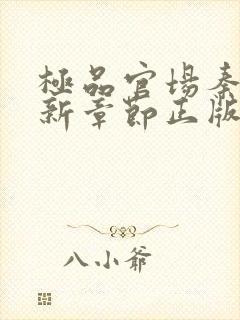 極品官場秦
新章節正版
八小爺